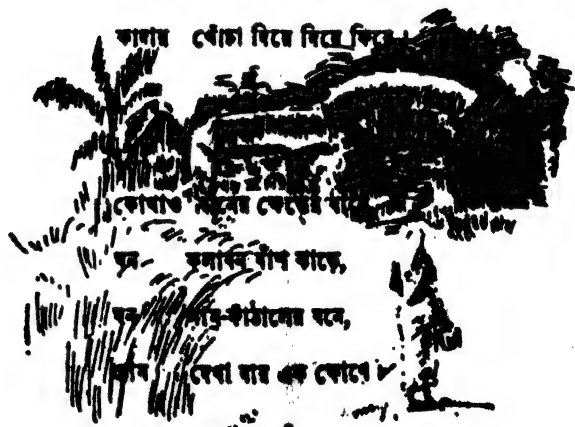 কাদায় খোঁচা দিয়ে দিয়ে ফিরে।
কোথাও ক্ষেতের
ঘন কলাবন বাঁশ ঝাড়ে,
ঘন আম-কাঁঠালের বনে,
গ্রাম দেখা যায় এক কোণে।